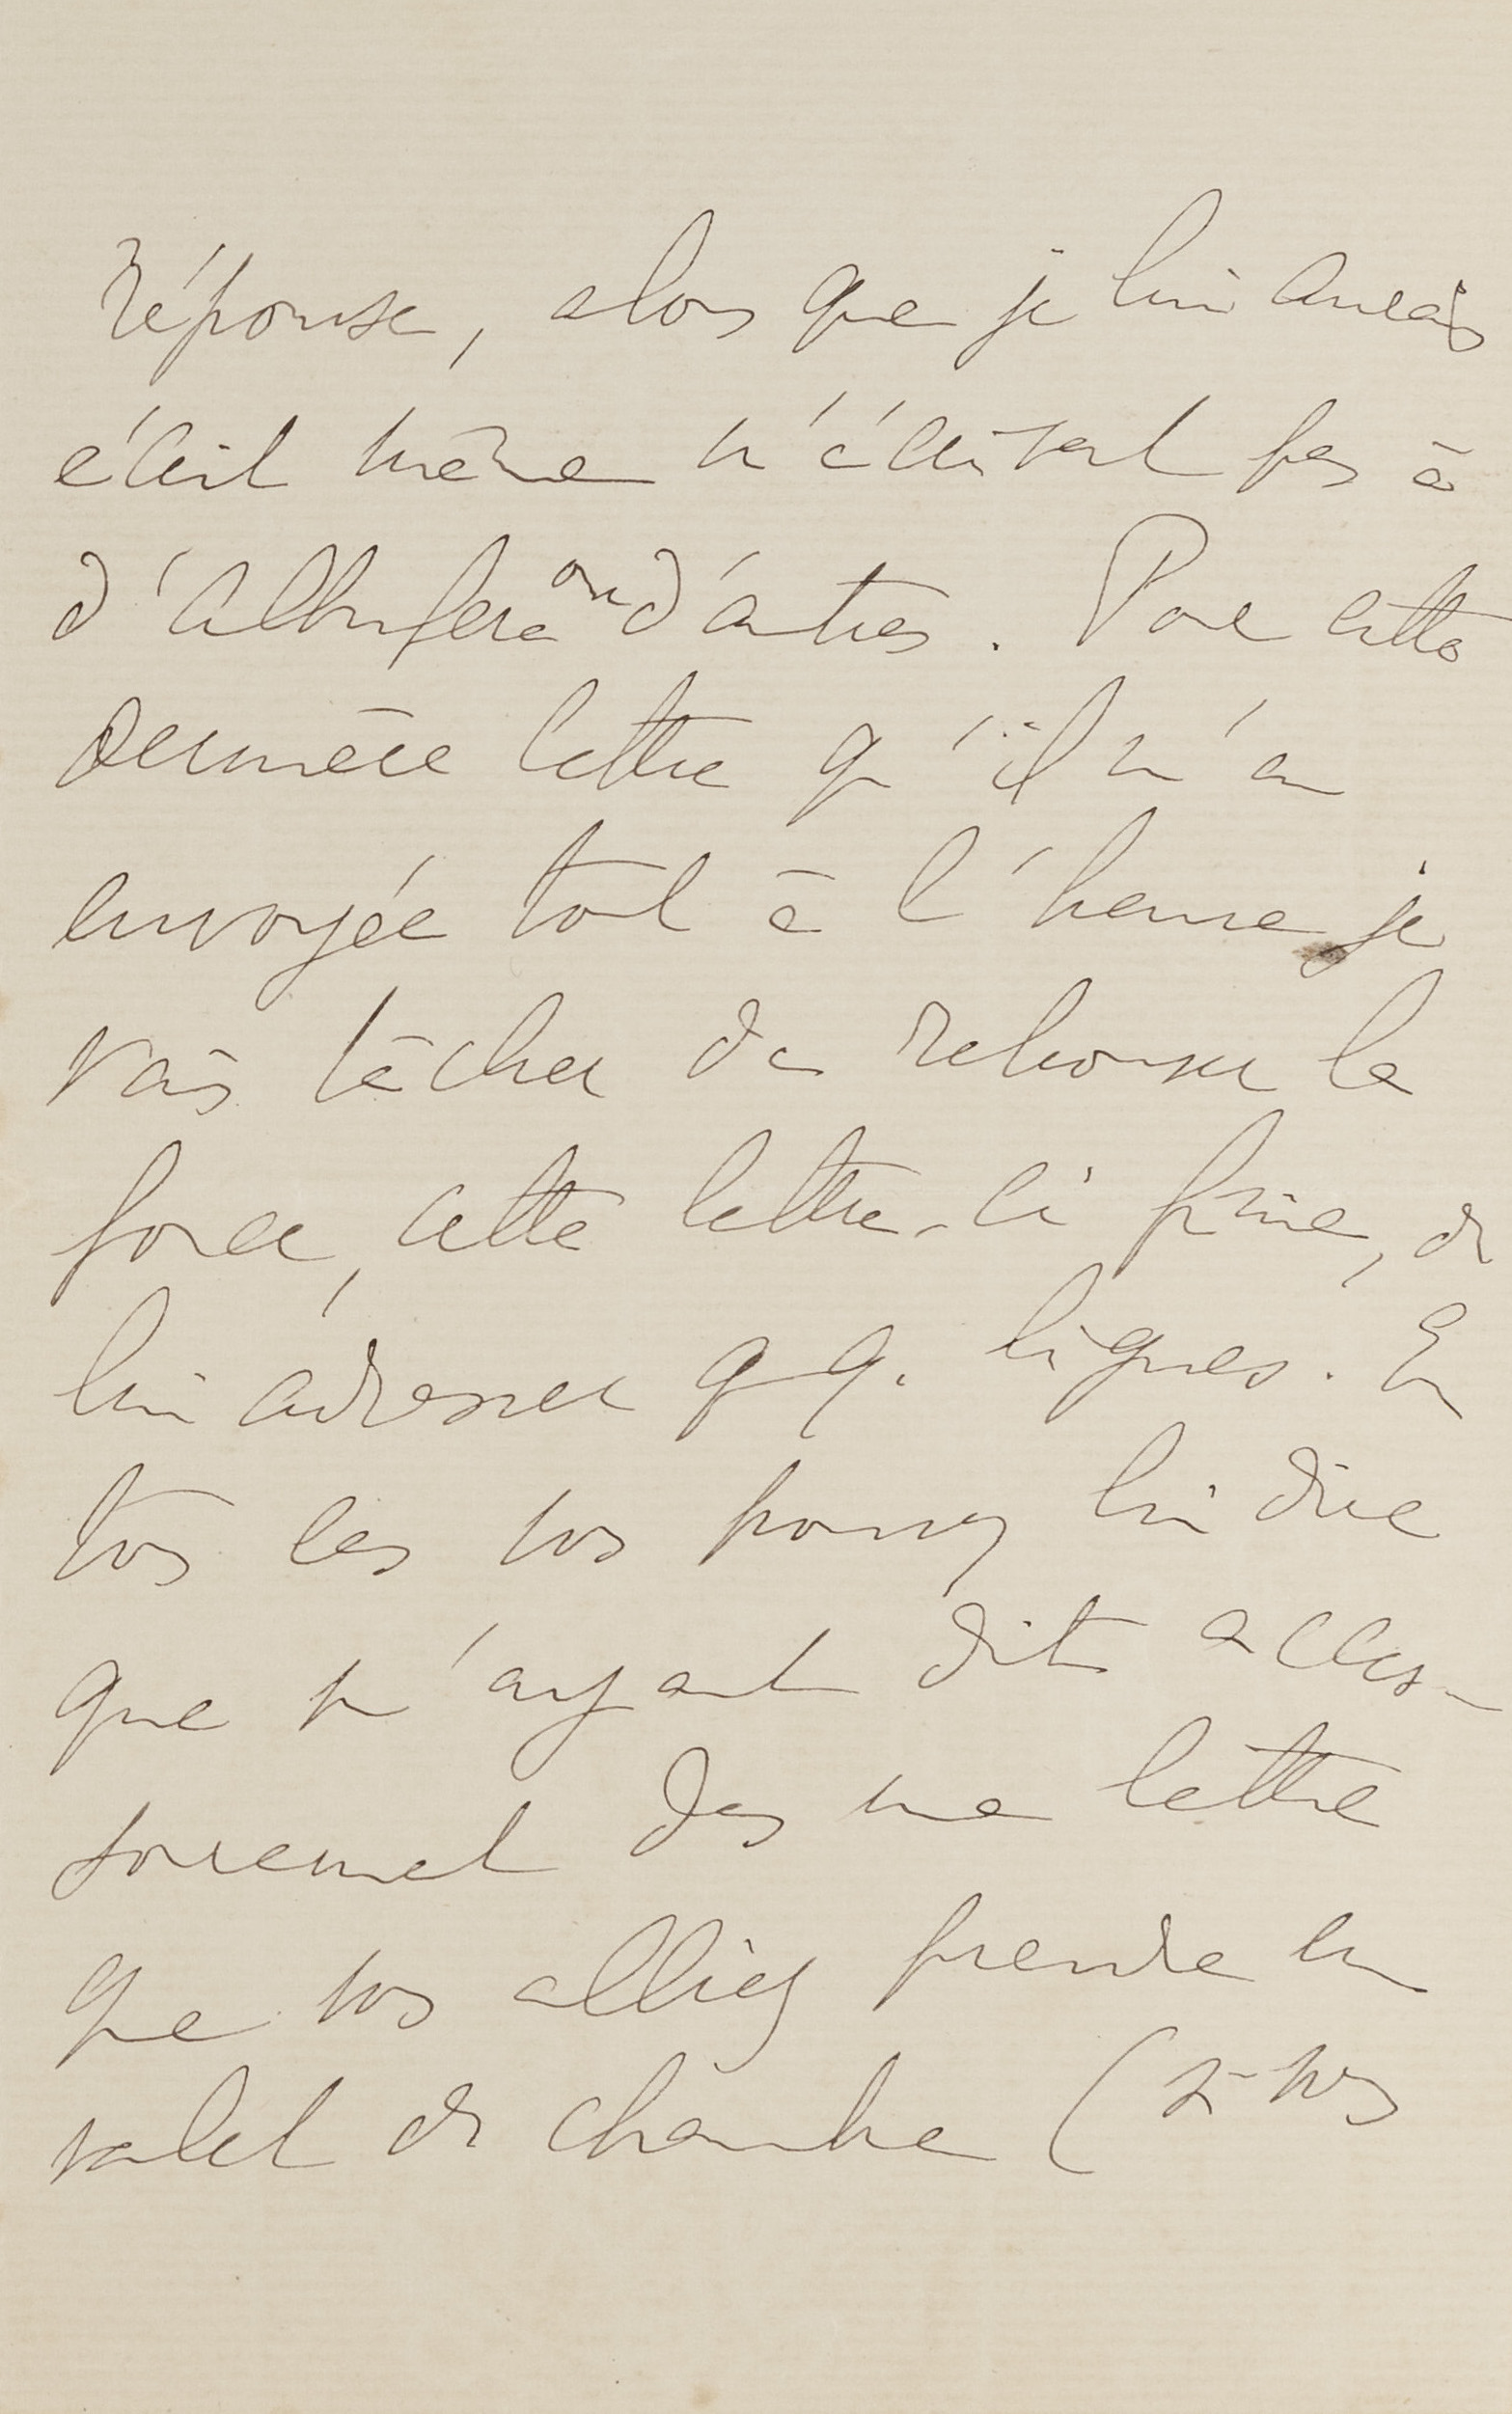 réponse, alors que je lui aurais
écrit même n'écrivant pas à
d'Albufera ou d'autres. Pour cette
dernière lettre qu'il m'a
envoyée tout à l'heure je
vais tâcher de retrouver la
force, cette lettre-ci finie, de
lui adresser qq. lignes. En
tous cas vous pourrez lui dire
que m'ayant dit acces-
soirement dans une lettre
que vous alliez prendre un
valet de chambre (si vous